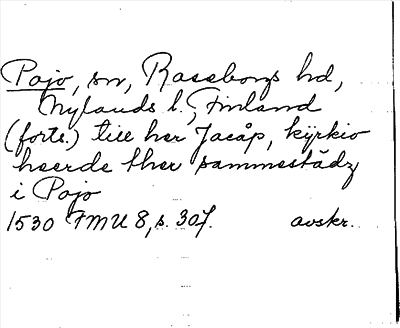 Pojo, sn, Raseborgs hd,
Nylands l., Finland
(forts.) till her Jacåp, kÿrkio
heerde ther sammestädz
i Pojo
1530 FMU 8, s. 307. avskr.